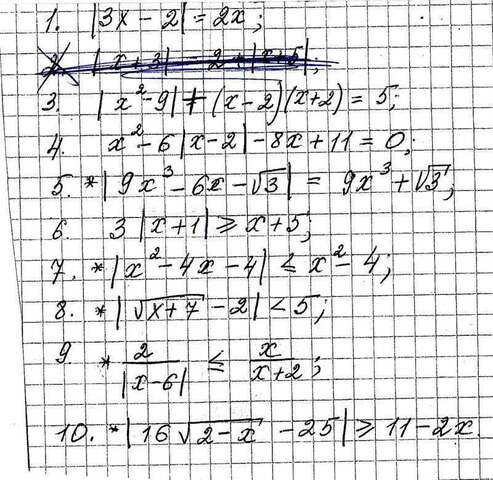 1. |3x - 2| = 2x;
3. |x² - 9| + (x - 2)(x + 2) = 5;
4. x² - 6|x - 2| - 8x + 11 = 0;
5. * |9x³ - 6x - √3| = 9x³ + √3;
6. 3|x + 1| ≥ x + 5;
7. * |x² - 4x - 4| ≤ x² - 4;
8. * |√(x + 7) - 2| < 5;
9. * 2/|x - 6| ≤ x/(x + 2);
10. * |16√(2 - x) - 25| ≥ 11 - 2x.